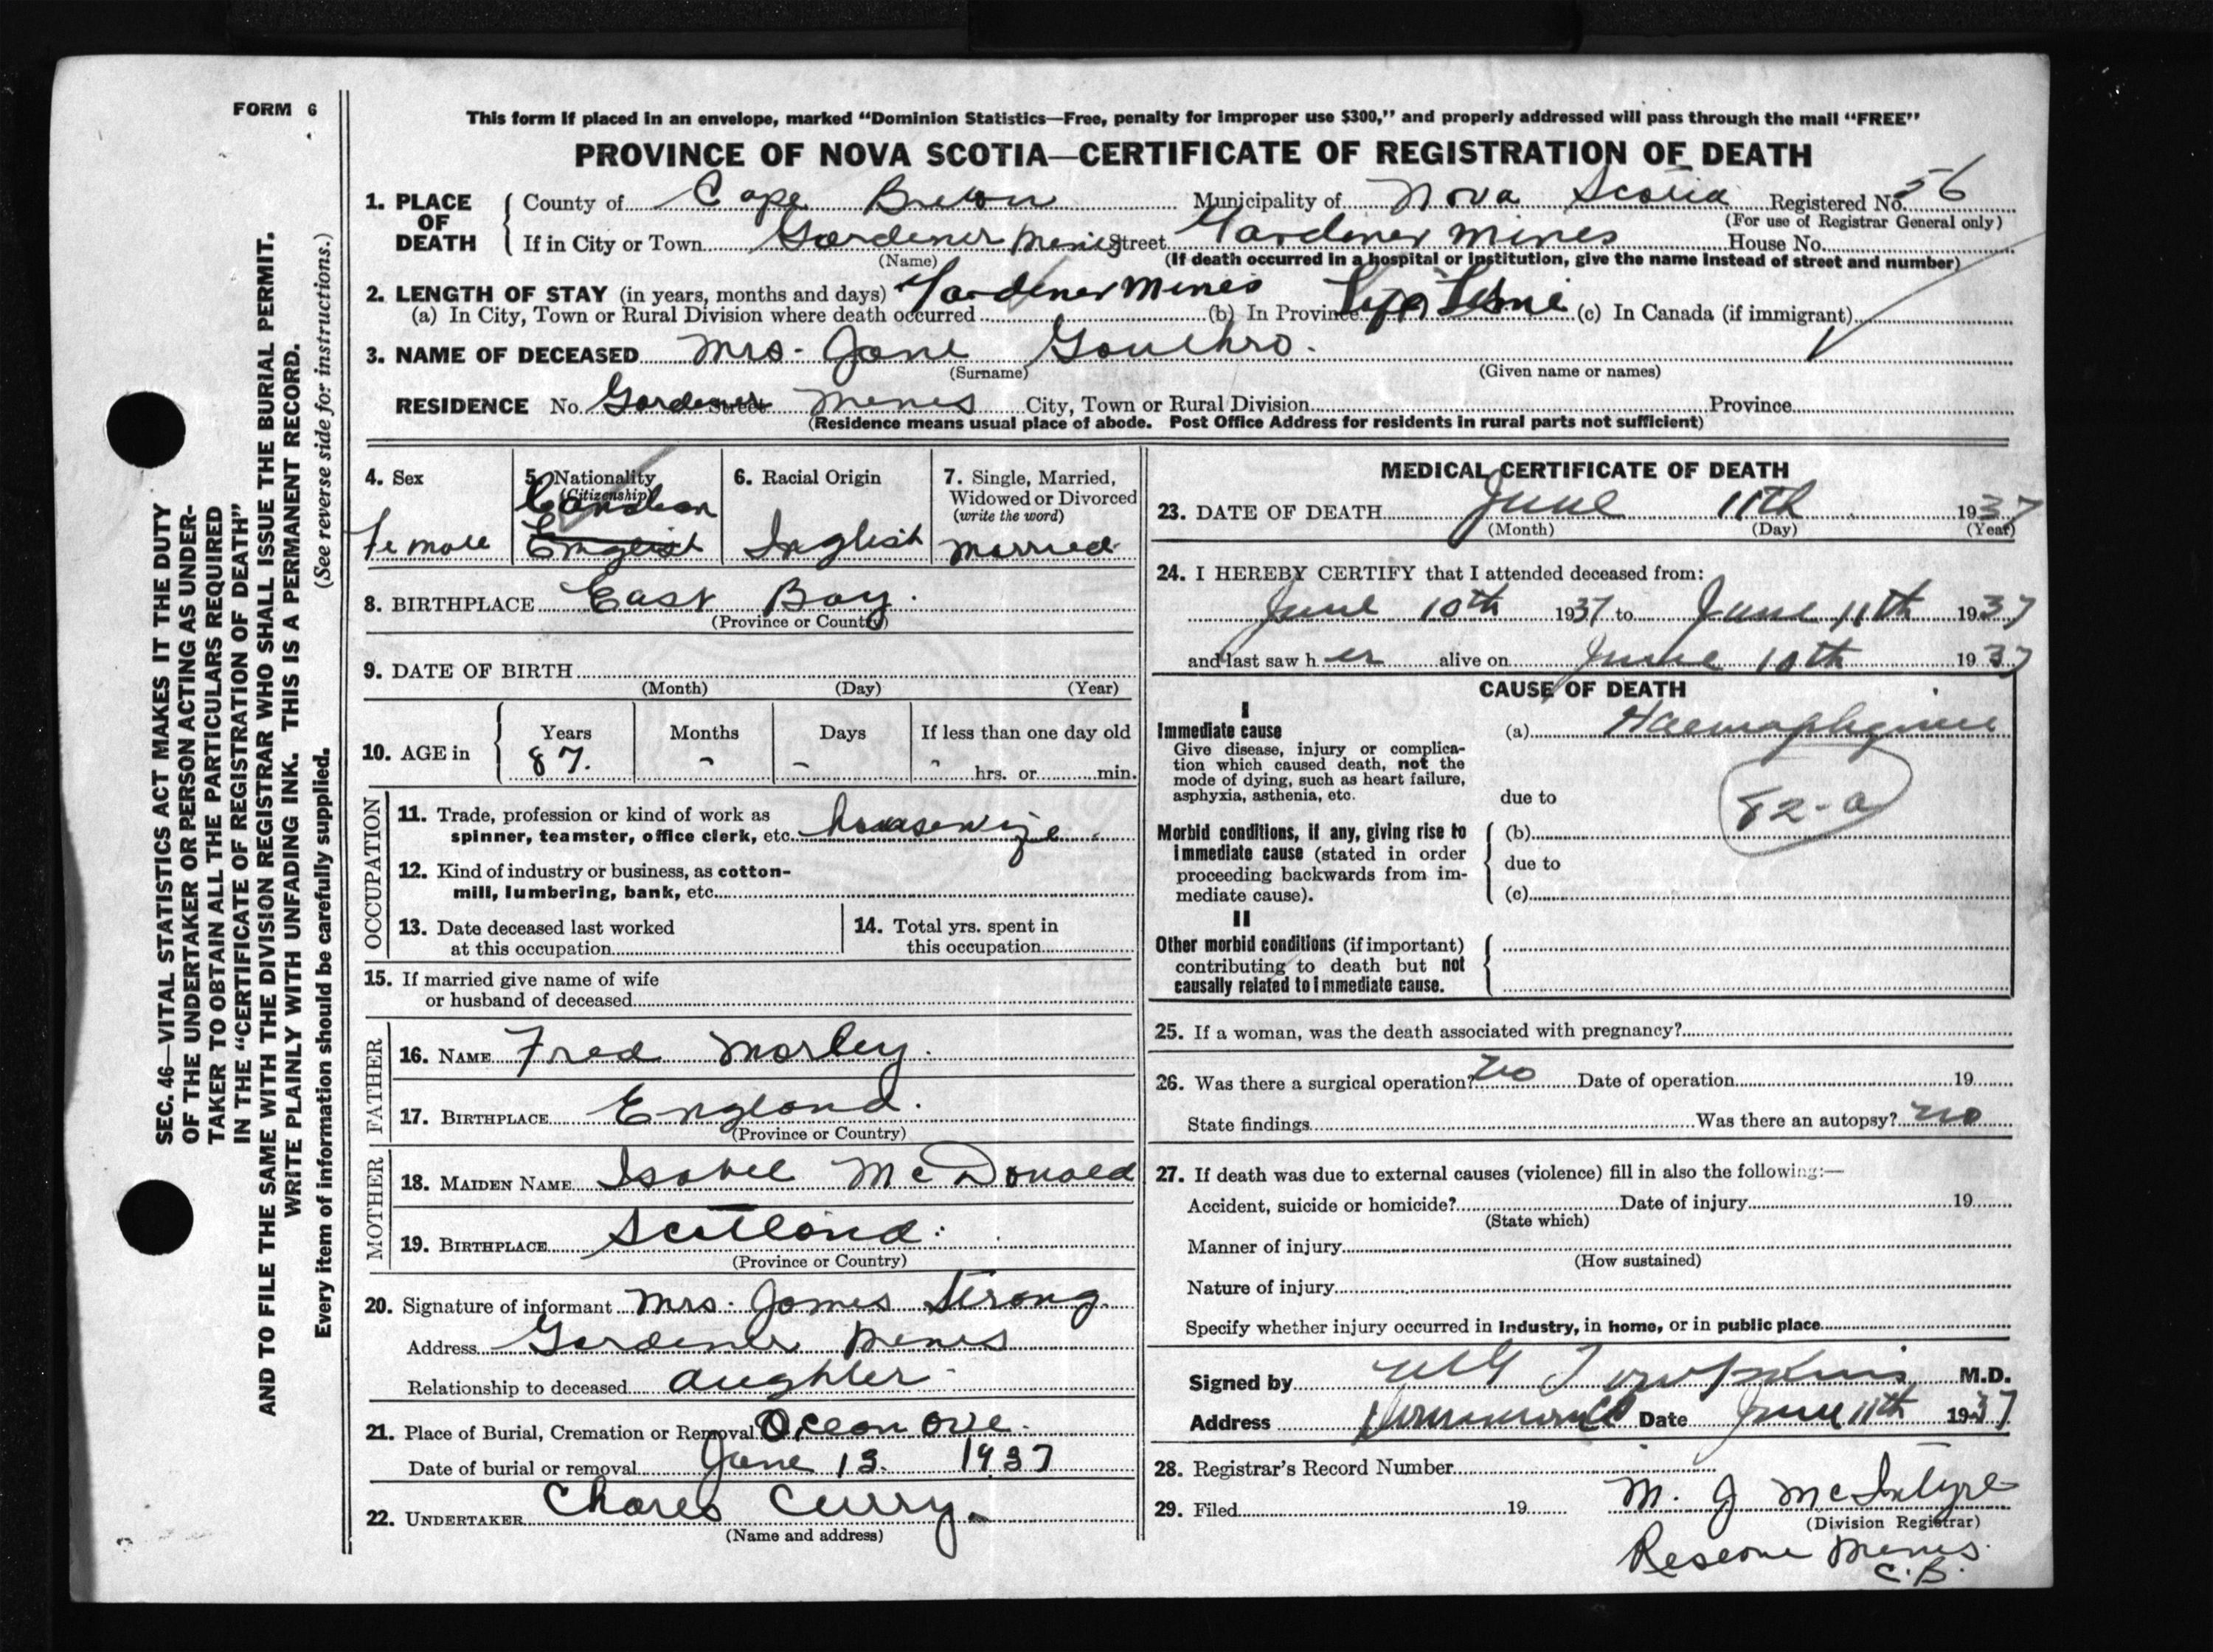 FORM 6
This form if placed in an envelope, marked “Dominion Statistics—Free, penalty for improper use $300,” and properly addressed will pass through the mail “FREE”
PROVINCE OF NOVA SCOTIA—CERTIFICATE OF REGISTRATION OF DEATH
1. PLACE OF DEATH
County of Cape Breton Municipality of Nova Scotia Registered No. 56
(For use of Registrar General only)
If in City or Town Gardener Mines Street Gardener Mines House No.
(Name) (If death occurred in a hospital or institution, give the name instead of street and number)
2. LENGTH OF STAY (in years, months and days) Gardener Mines
(a) In City, Town or Rural Division where death occurred (b) In Province Life time (c) In Canada (if immigrant)
3. NAME OF DECEASED Mrs. Jane Gouthro.
(Surname) (Given name or names)
RESIDENCE No. Gardener Street Mines City, Town or Rural Division Province
(Residence means usual place of abode. Post Office Address for residents in rural parts not sufficient)
4. Sex
Female
5. Nationality
(Citizenship)
Canadian
English
6. Racial Origin
Inglish
7. Single, Married,
Widowed or Divorced
(write the word)
Married
8. BIRTHPLACE East Bay.
(Province or Country)
9. DATE OF BIRTH
(Month) (Day) (Year)
10. AGE in
Years Months Days If less than one day old
87. - - " hrs. or min.
OCCUPATION
11. Trade, profession or kind of work as
spinner, teamster, office clerk, etc. housewife
12. Kind of industry or business, as cotton-
mill, lumbering, bank, etc.
13. Date deceased last worked
at this occupation
14. Total yrs. spent in
this occupation
15. If married give name of wife
or husband of deceased
FATHER
16. NAME Fred Morley.
17. BIRTHPLACE England.
(Province or Country)
MOTHER
18. MAIDEN NAME Isabel McDonald
19. BIRTHPLACE Scotland.
(Province or Country)
20. Signature of informant Mrs. James Strong
Address Gardener Mines
Relationship to deceased aughter
21. Place of Burial, Cremation or Removal Ocean ove.
Date of burial or removal June 13. 1937
22. UNDERTAKER Chares Curry.
(Name and address)
MEDICAL CERTIFICATE OF DEATH
23. DATE OF DEATH June 11th 1937
(Month) (Day) (Year)
24. I HEREBY CERTIFY that I attended deceased from:
June 10th 1937 to June 11th 1937
and last saw her alive on June 10th 1937
CAUSE OF DEATH
I
Immediate cause
Give disease, injury or complica-
tion which caused death, not the
mode of dying, such as heart failure,
asphyxia, asthenia, etc.
(a)
due to
82-a
Morbid conditions, if any, giving rise to
immediate cause (stated in order
proceeding backwards from im-
mediate cause).
(b)
due to
(c)
II
Other morbid conditions (if important)
contributing to death but not
causally related to immediate cause.
25. If a woman, was the death associated with pregnancy?
26. Was there a surgical operation? no Date of operation 19
State findings Was there an autopsy? no
27. If death was due to external causes (violence) fill in also the following:—
Accident, suicide or homicide? Date of injury 19
(State which)
Manner of injury
(How sustained)
Nature of injury
Specify whether injury occurred in industry, in home, or in public place
Signed by M.D.
Address Date June 11th 1937
28. Registrar’s Record Number
29. Filed 19 M. J McIntyre
(Division Registrar)
Reserve Mines.
C.B.
SEC. 46—VITAL STATISTICS ACT MAKES IT THE DUTY
OF THE UNDERTAKER OR PERSON ACTING AS UNDER-
TAKER TO OBTAIN ALL THE PARTICULARS REQUIRED
IN THE “CERTIFICATE OF REGISTRATION OF DEATH”
AND TO FILE THE SAME WITH THE DIVISION REGISTRAR WHO SHALL ISSUE THE BURIAL PERMIT.
WRITE PLAINLY WITH UNFADING INK. THIS IS A PERMANENT RECORD.
Every item of information should be carefully supplied. (See reverse side for instructions.)